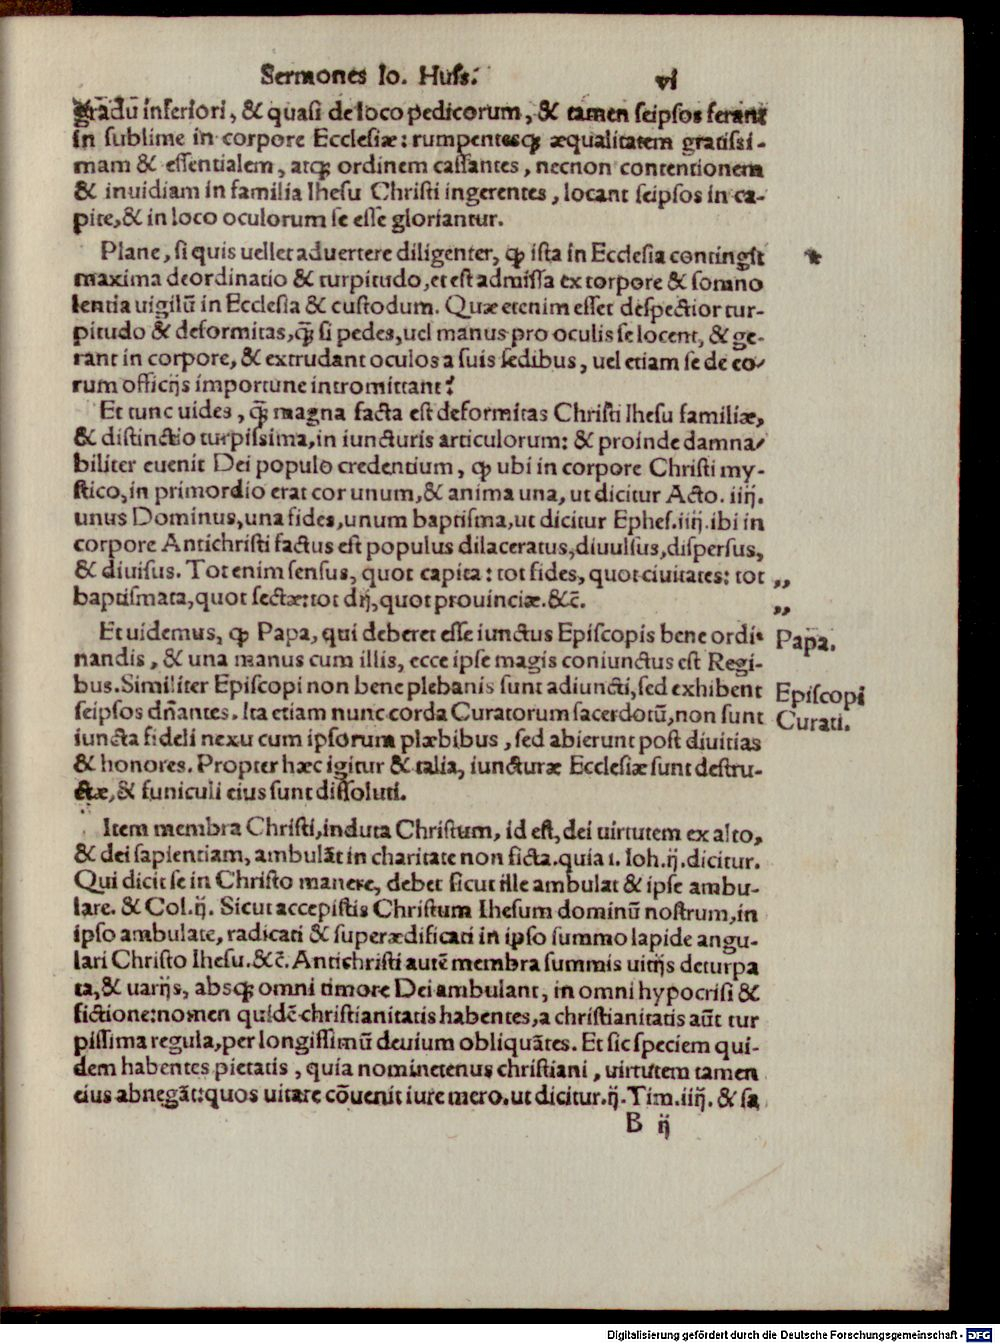 Sermones Io. Huſs.
vi
gradū inferiori, & quaſi de loco pedicorum, & tamen ſeipſos ferant
in ſublime in corpore Eccleſiæ: rumpentesq; æqualitatem gratiſsi-
mam & eſſentialem, atq; ordinem caſſantes, necnon contentionem
& inuidiam in familia Iheſu Chriſti ingerentes, locant ſeipſos in ca-
pite, & in loco oculorum ſe eſſe gloriantur.
Plane, ſi quis uellet aduertere diligenter, ꝙ iſta in Eccleſia contingit
maxima deordinatio & turpitudo, et eſt admiſſa ex torpore & ſomno
lentia uigilū in Eccleſia & cuſtodum. Quæ etenim eſſet deſpectior tur-
pitudo & deformitas, q̄ ſi pedes, uel manus pro oculis ſe locent, & ge-
rant in corpore, & extrudant oculos a ſuis ſedibus, uel etiam ſe de eo/
rum officijs importune intromittant?
Et tunc uides, q̄ magna facta eſt deformitas Chriſti Iheſu familiæ,
& diſtinctio turpiſsima, in iuncturis articulorum: & proinde damna/
biliter euenit Dei populo credentium, ꝙ ubi in corpore Chriſti my-
ſtico, in primordio erat cor unum, & anima una, ut dicitur Acto. iiij.
unus Dominus, una fides, unum baptiſma, ut dicitur Epheſ. iiij. ibi in
corpore Antichriſti factus eſt populus dilaceratus, diuulſus, diſperſus,
& diuiſus. Tot enim ſenſus, quot capita: tot fides, quot ciuitates: tot
„
baptiſmata, quot ſectæ: tot dij, quot prouinciæ. &c̄.
„
Et uidemus, ꝙ Papa, qui deberet eſſe iunctus Epiſcopis bene ordi-
Papa.
nandis, & una manus cum illis, ecce ipſe magis coniunctus eſt Regi-
bus. Similiter Epiſcopi non bene plebanis ſunt adiuncti, ſed exhibent
Epiſcopi
ſeipſos dn̄antes. Ita etiam nunc corda Curatorum ſacerdotū, non ſunt
Curati.
iuncta fideli nexu cum ipſorum plæbibus, ſed abierunt poſt diuitias
& honores. Propter hæc igitur & talia, iuncturæ Eccleſiæ ſunt deſtru-
ctæ, & funiculi eius ſunt diſſoluti.
Item membra Chriſti, induta Chriſtum, id eſt, dei uirtutem ex alto,
& dei ſapientiam, ambulāt in charitate non ficta. quia 1. Ioh. ij. dicitur.
Qui dicit ſe in Chriſto manere, debet ſicut ille ambulat & ipſe ambu-
lare. & Col. ij. Sicut accepiſtis Chriſtum Iheſum dominū noſtrum, in
ipſo ambulate, radicati & ſuperædificati in ipſo ſummo lapide angu-
lari Chriſto Iheſu. &c̄. Antichriſti autē membra ſummis uitijs deturpa
ta, & uarijs, absq; omni timore Dei ambulant, in omni hypocriſi &
fictione: nomen quidē chriſtianitatis habentes, a chriſtianitatis aūt tur
piſſima regula, per longiſſimū deuium obliquātes. Et ſic ſpeciem qui-
dem habentes pietatis, quia nominetenus chriſtiani, uirtutem tamen
eius abnegāt: quos uitare cōuenit iure mero. ut dicitur. ij. Tim. iiij. & ſa
B ij
Digitalisierung gefördert durch die Deutsche Forschungsgemeinschaft - DFG